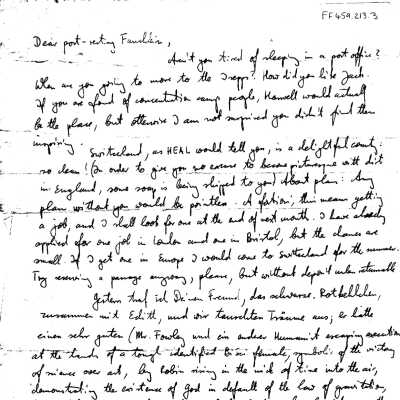 FF459.213.3
Dear post-resting Fauchier,
Aren't you tired of sleeping in a post office?
When are you going to move to the ? How did you like Jack.
If you are afond of concentration camp people, Hanwell would actually
be the place, but otherwise I am not surprised you didn't find them
inspiring.
Switzerland, as HEAL would tell you, is a delightful county:
so clean! (In order to give you no excuse to become picturesque with dirt
in England, some soap is being shipped to you) About plan: Any
plan without you would be pointless. A fortiori, this means getting
a job, and I shall look for one at the end of next month. I have already
applied for one job in London and one in Bristol, but the chances are
small. If I get one in Europe I would come to Switzerland for the summer.
Try reserving a passage anyway, please, but without deposit unless returnable
Gestern traf ich Deinen Freund, das schwarze Rotkehlchen,
zusammen mit Edith, und wir tauschten Träume aus; er hatte
einen sehr guten (Mr. Fowley und ein anderer Humanist escaping execution
at the hands of a tough identified as a female, symbolic of the victory
of science over art, by robin rising in the mid of time into the air,
demonstrating the existence of God in default of the law of gravitation,